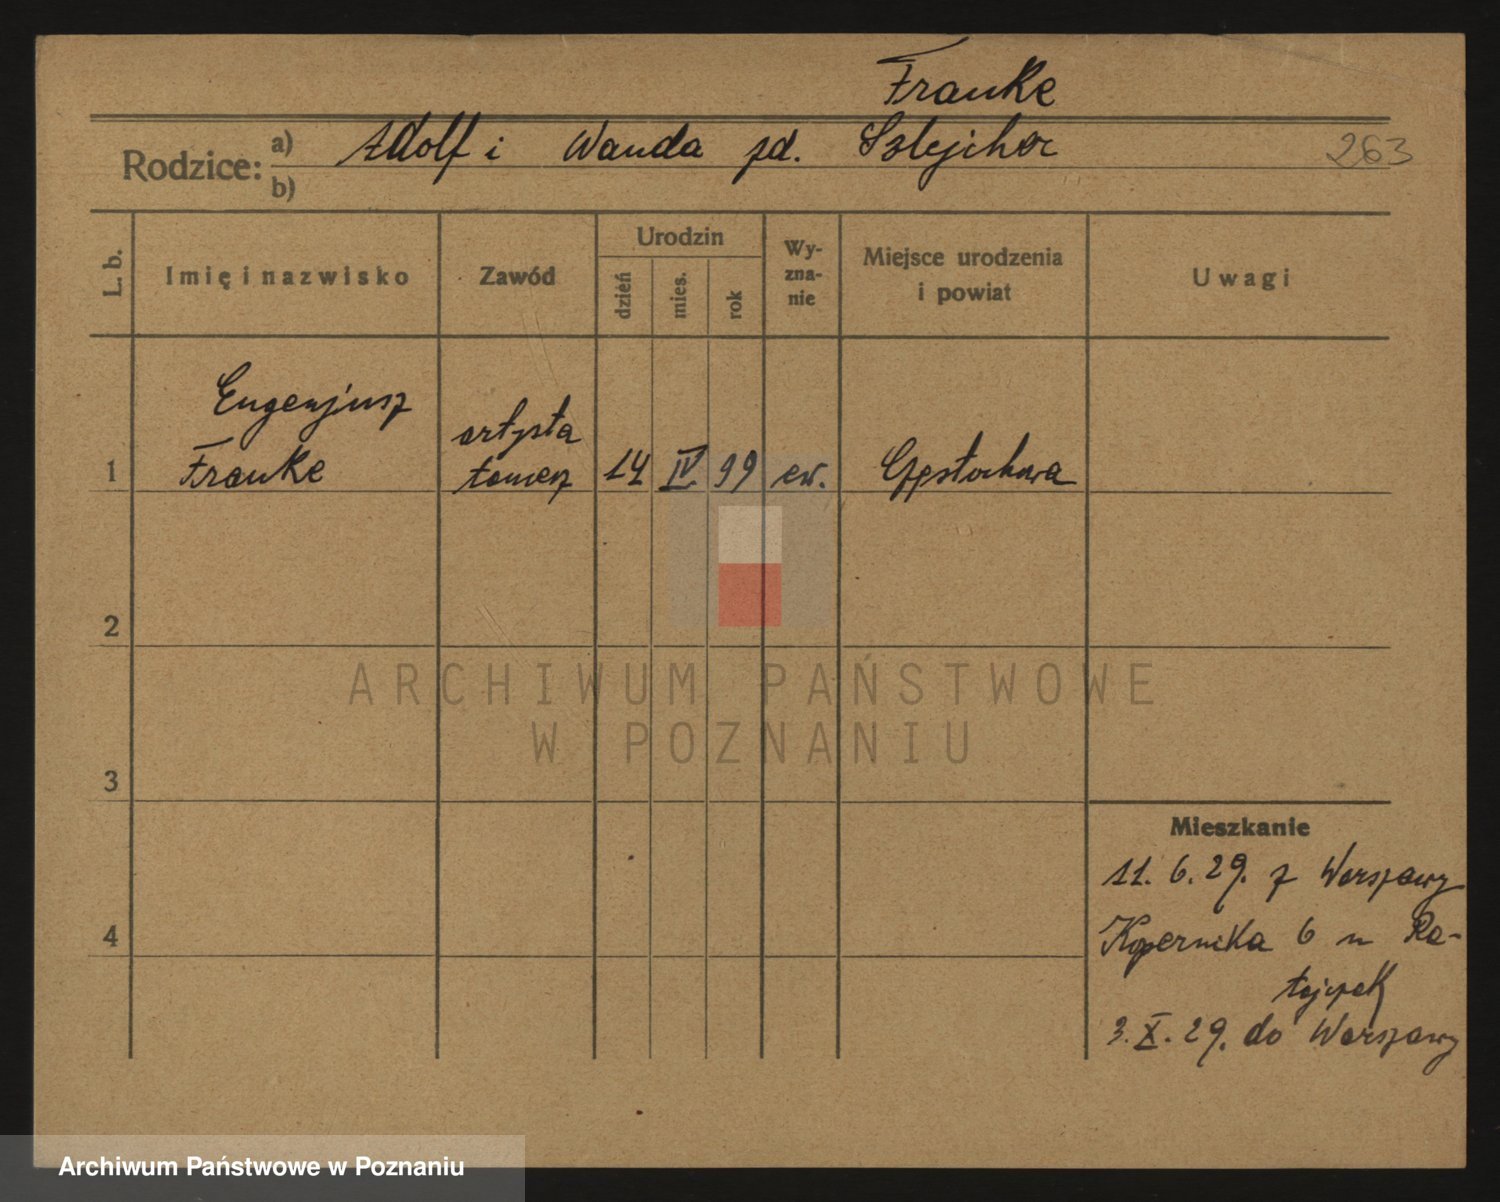 Franke
Rodzice: a) Adolf i Wanda zd. Szlejcher
b)
263
L. b.
Imię i nazwisko
Zawód
Urodzin
dzień
mies.
rok
Wy-
zna-
nie
Miejsce urodzenia
i powiat
Uwagi
Eugenjusz
artysta
1 Franke tancerz 14 IV. 99 ew. Częstochowa
2
ARCHIWUM PAŃSTWOWE
W POZNANIU
3
Mieszkanie
11. 6. 29. z Warszawy
4
Kopernika 6 u Ra-
tajczak
3. X. 29. do Warszawy
Archiwum Państwowe w Poznaniu